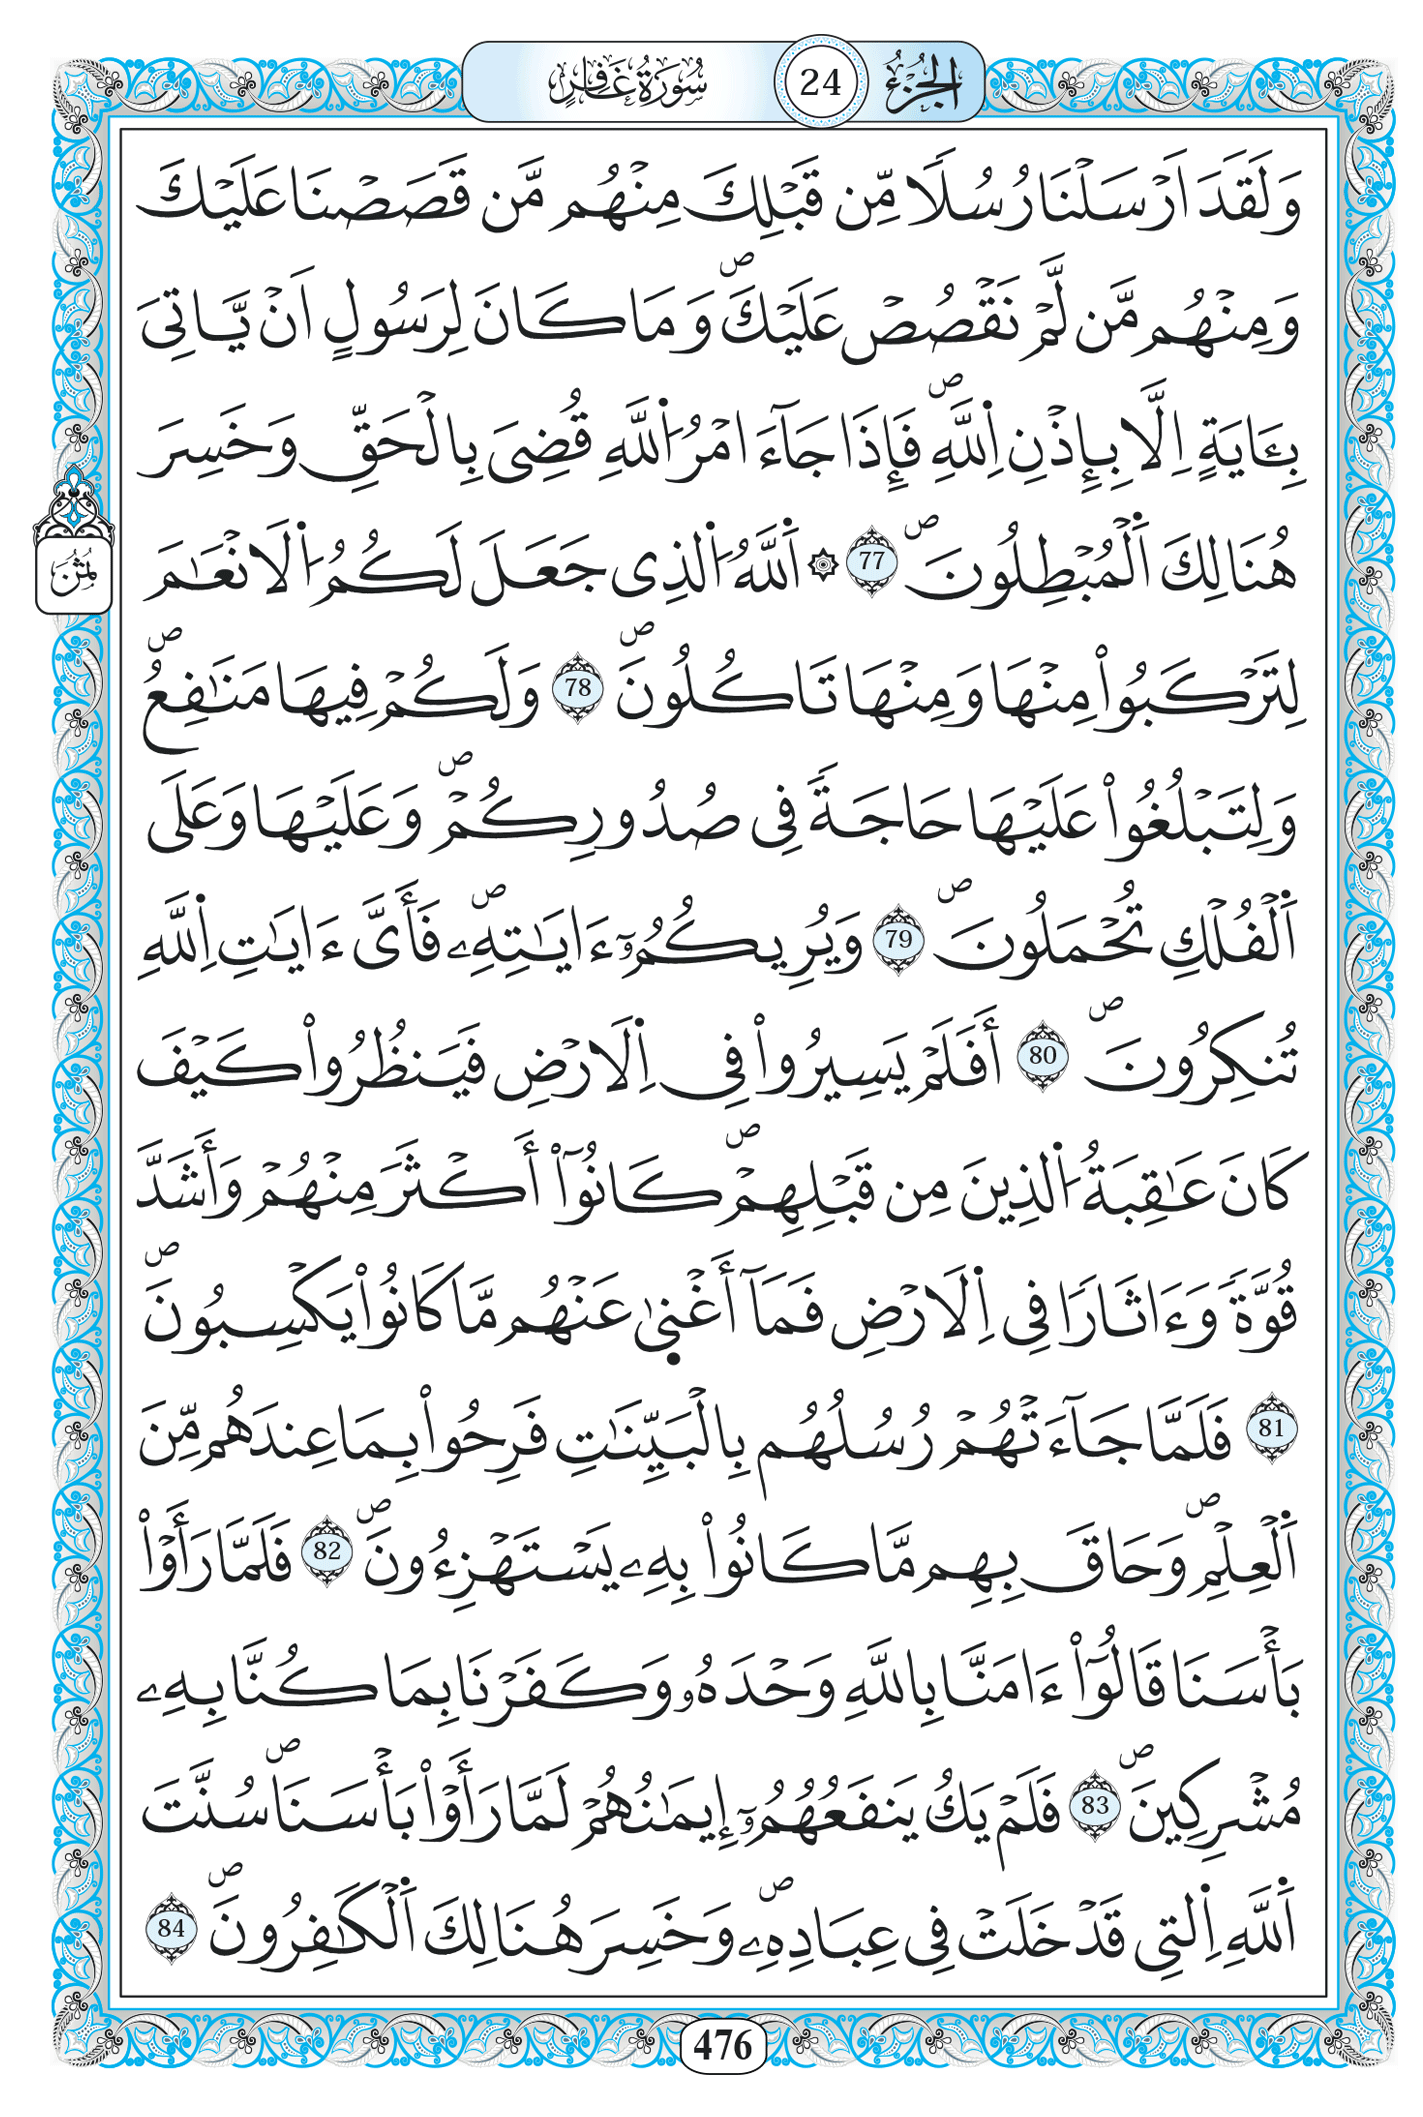 الجزء 24 سورة غافر
وَلَقَدَ اَرْسَلْنَا رُسُلًا مِّن قَبْلِكَ مِنْهُم مَّن قَصَصْنَا عَلَيْكَ
وَمِنْهُم مَّن لَّمْ نَقْصُصْ عَلَيْكَۖ وَمَا كَانَ لِرَسُولٍ اَنْ يَّاتِىَ
بِـَٔايَةٍ اِلَّا بِإِذْنِ اِ۬للَّهِۖ فَإِذَا جَآءَ امْرُ اُ۬للَّهِ قُضِىَ بِالْحَقِّ وَخَسِرَ
هُنَالِكَ اَ۬لْمُبْطِلُونَۖ 77 ۞ اَ۬للَّهُ اُ۬لذِى جَعَلَ لَكُمُ اُ۬لَانْعَٰمَ
لِتَرْكَبُواْ مِنْهَا وَمِنْهَا تَاكُلُونَۖ 78 وَلَكُمْ فِيهَا مَنَٰفِعُۖ
وَلِتَبْلُغُواْ عَلَيْهَا حَاجَةً فِى صُدُورِكُمْۖ وَعَلَيْهَا وَعَلَى
اَ۬لْفُلْكِ تُحْمَلُونَۖ 79 وَيُرِيكُمُۥٓ ءَايَٰتِهِۦۖ فَأَىَّ ءَايَٰتِ اِ۬للَّهِ
تُنكِرُونَۖ 80 أَفَلَمْ يَسِيرُواْ فِى اِ۬لَارْضِ فَيَنظُرُواْ كَيْفَ
كَانَ عَٰقِبَةُ اُ۬لذِينَ مِن قَبْلِهِمْۖ كَانُوٓاْ أَكْثَرَ مِنْهُمْ وَأَشَدَّ
قُوَّةً وَءَاثَارًا فِى اِ۬لَارْضِ فَمَآ أَغْن۪ىٰ عَنْهُم مَّا كَانُواْ يَكْسِبُونَۖ
81 فَلَمَّا جَآءَتْهُمْ رُسُلُهُم بِالْبَيِّنَٰتِ فَرِحُواْ بِمَا عِندَهُم مِّنَ
اَ۬لْعِلْمِۖ وَحَاقَ بِهِم مَّا كَانُواْ بِهِۦ يَسْتَهْزِءُونَۖ 82 فَلَمَّا رَأَوْاْ
بَأْسَنَا قَالُوٓاْ ءَامَنَّا بِاللَّهِ وَحْدَهُۥ وَكَفَرْنَا بِمَا كُنَّا بِهِۦ
مُشْرِكِينَۖ 83 فَلَمْ يَكُ يَنفَعُهُمُۥٓ إِيمَٰنُهُمْ لَمَّا رَأَوْاْ بَأْسَنَاۖ سُنَّتَ
اَ۬للَّهِ اِ۬لتِى قَدْ خَلَتْ فِى عِبَادِهِۦۖ وَخَسِرَ هُنَالِكَ اَ۬لْكَٰفِرُونَۖ 84
ثُمُنْ
476